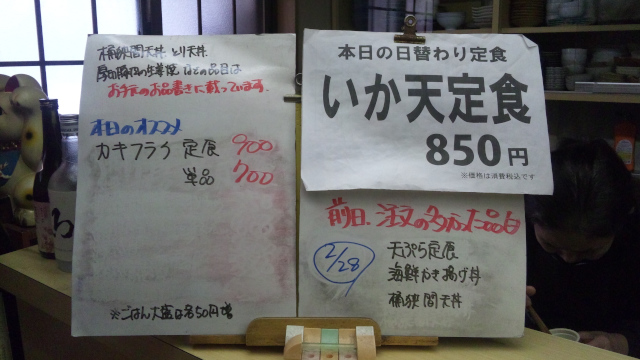 桶狭間天丼 とり天丼
豚の生姜焼 などの品目は
お手元のお品書きに載っています。
本日のオススメ
カキフライ 定食 900
単品 700
※ごはん大盛は各50円増
本日の日替わり定食
いか天定食
850円
※価格は消費税込です
前日、注文の多かった品目
2/28
天ぷら定食
海鮮かき揚げ丼
桶狭間天丼